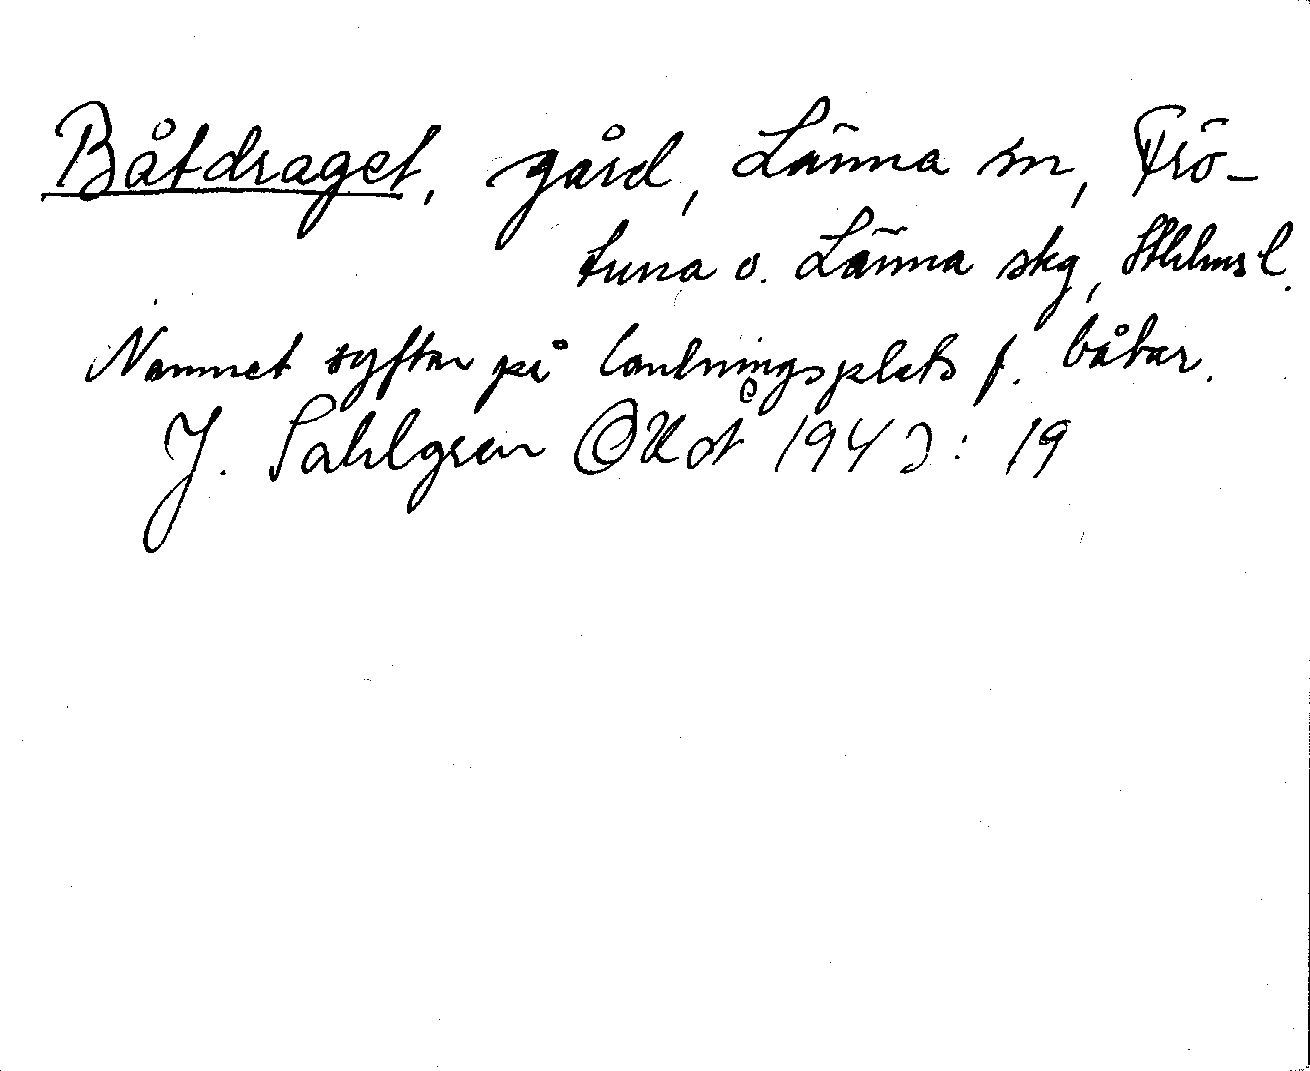 Båtdraget, gård, Länna sn, Frö-
tuna o. Länna skg, Sthlms l.
Namnet syftar på landningsplats f. båtar.
J. Sahlgren 194 : 19